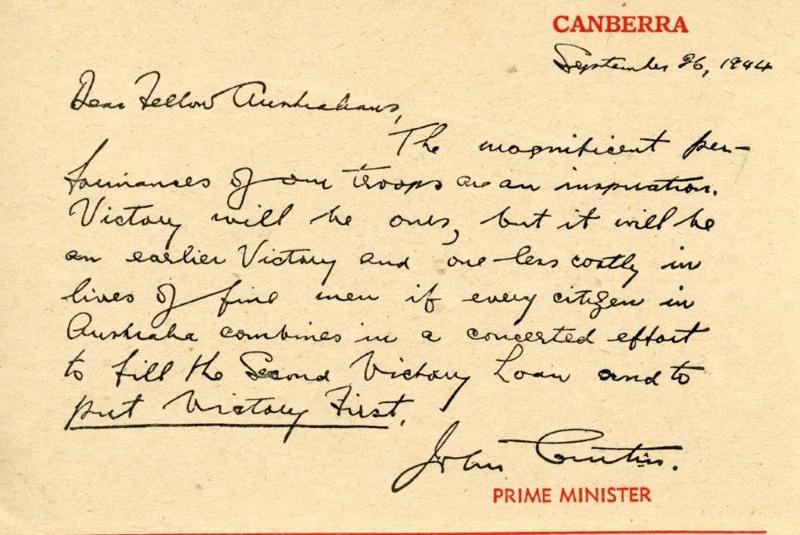 CANBERRA
September 26, 1944
Dear Fellow Australians,
The magnificent per-
formances of our troops are an inspiration.
Victory will be ours, but it will be
an earlier Victory and one less costly in
lives of fine men if every citizen in
Australia combines in a concerted effort
to fill the Second Victory Loan and to
put Victory First.
John Curtin.
PRIME MINISTER